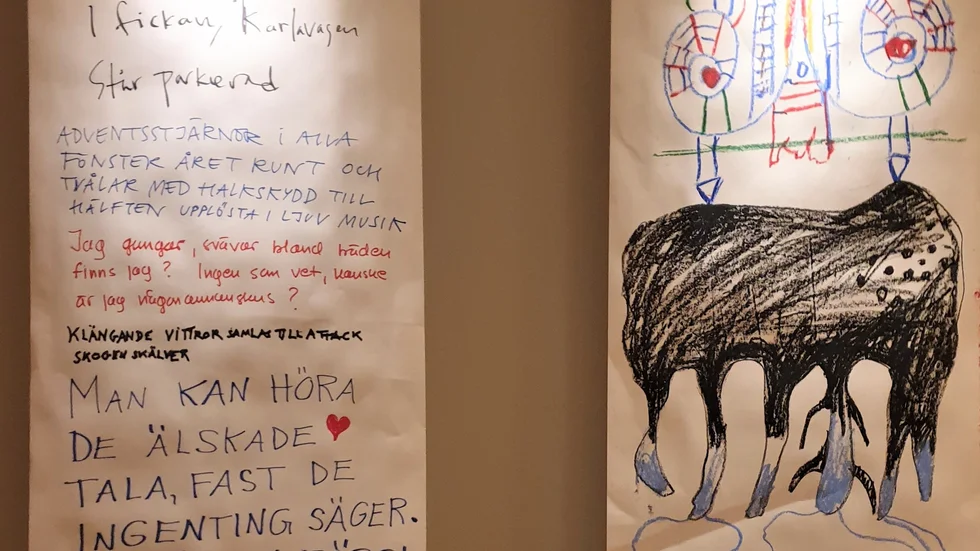 I fickan, Karlavagen
Står parkerad
ADVENTSSTJÄRNOR I ALLA
FÖNSTER ÅRET RUNT OCH
TVÅLAR MED HALKSKYDD TILL
HÄLFTEN UPPLÖSTA I LJUV MUSIK
Jag gungar, svävar bland träden
finns jag? Ingen som vet, kanske
är jag någonannanstans?
KLÄNGANDE VITTROR SAMLAS TILL ATTACK
SKOGEN SKÄLVER
MAN KAN HÖRA
DE ÄLSKADE
TALA, FAST DE
INGENTING SÄGER.